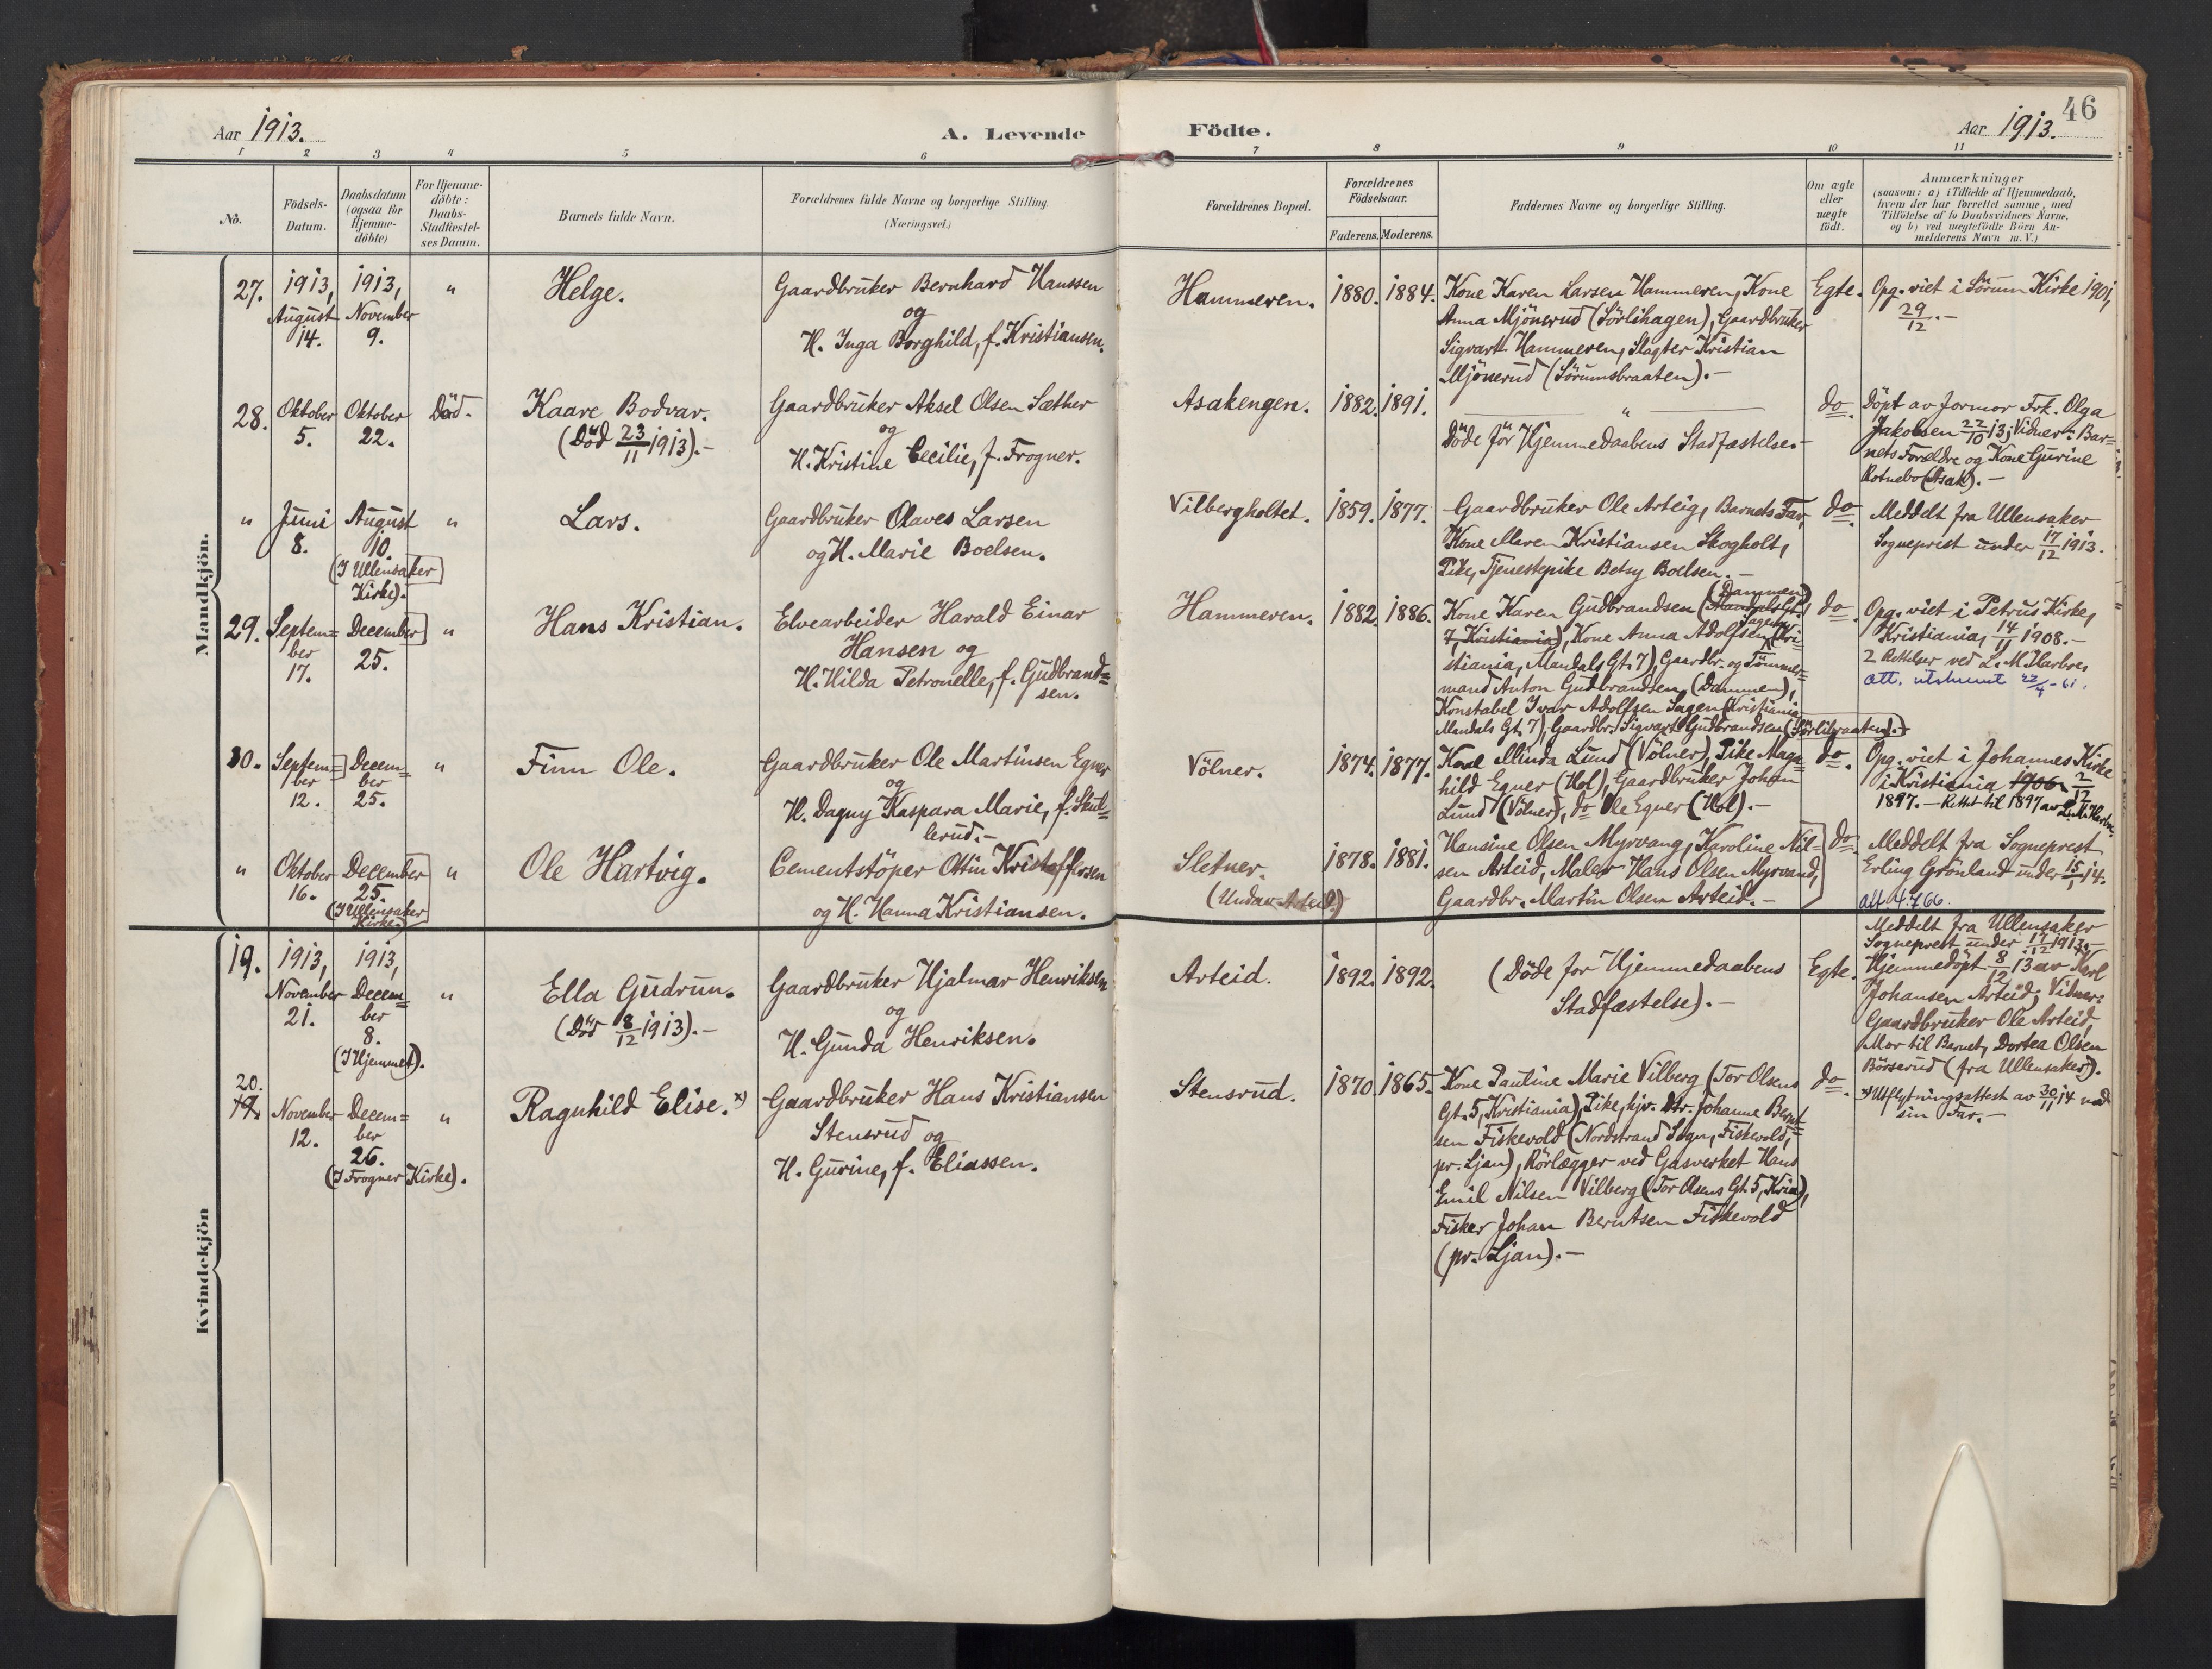 46
Aar 1913.
A. Levende
Födte.
Aar 1913.
1 2 3 4 5 6 7 8 9 10 11
No.
Födsels-
Datum.
Daabsdatum
(ogsaa for
Hjemme-
döbte)
For Hjemme-
döbte:
Daabs-
Stadfæstel-
ses Datum.
Barnets fulde Navn.
Forældrenes fulde Navne og borgerlige Stilling.
(Næringsvei.)
Forældrenes Bopæl.
Forældrenes
Födselsaar.
Faderens. Moderens.
Faddernes Navne og borgerlige Stilling.
Om ægte
eller
uægte
födt.
Anmærkninger
(saasom: a) i Tilfælde af Hjemmedaab,
hvem der har forrettet samme, med
Tilföielse af to Daabsvidners Navne,
og b) ved uægtefödte Börn An-
melderens Navn m.V.)
Mandkjön.
27.
1913,
August
14.
1913,
November
9.
"
Helge.
Gaardbruker Bernhard Hanssen
og
H. Inga Borghild, f. Kristiansen.
Hammeren.
1880.
1884.
Kone Karen Larsen Hammeren, Kone
Anna Mjönerud (Sörlihagen), Gaardbruker
Sigvart Hammeren, Slagter Kristian
Mjönerud (Sörumsbraaten).-
Egte.
Opg. viet i Sörum Kirke 1901,
29/12.-
28.
Oktober
5.
Oktober
22.
Död.
Kaare Bodvar.
(Död 23/11 1913).-
Gaardbruker Aksel Olsen Sæther
og
H. Kristine Cecilie, f. Frogner.
Asakengen.
1882.
1891.
"
Döde för Hjemmedaabens Stadfæstelse.-
do.
Döpt av Jormor Frk. Olga
Jakobsen 22/10 13; Vidner: Bar=
nets Forældre og Kone Gurine
Rotnebo (Asak).-
"
Juni
8.
August
10.
(I Ullensaker
Kirke).
"
Lars.
Gaardbruker Olaves Larsen
og H. Marie Boelsen.
Vilbergholtet.
1859.
1877.
Gaardbruker Ole Arteig, Barnets Far,
Kone Maren Kristiansen Skogholt,
Pike, Tjenestepike Betsy Boelsen.-
do.
Meddelt fra Ullensaker
Sogneprest under 17/12 1913.
29.
Septem=
ber
17.
December
25.
"
Hans Kristian.
Elvearbeider Harald Einar
Hansen og
H. Hilda Petronelle, f. Gudbrand=
sen.
Hammeren.
1882.
1886.
(Dammen)
Kone Karen Gudbrandsen (Mandals Gt.
7, Kristiania), Kone Anna Adolfsen Sagen (Kri=
stiania, Mandals Gt. 7), Gaardbr. og Tömmer=
mand Anton Gudbrandsen (Dammen),
Konstabel Ivar Adolfsen Sagen (Kristiania
Mandals Gt. 7), Gaardbr. Sigvart Gudbrandsen (Sörlibraaten).-
do.
Opg. viet i Petrus Kirke,
Kristiania, 14/11 1908.-
2 Rettelser ved L. M. Harbre.
att. utskrevet 22/4-61.
30.
Septem=
ber
12.
Decem=
ber
25.
"
Finn Ole.
Gaardbruker Ole Martinsen Egner
og
H. Dagny Kaspara Marie, f. Skul=
lerud.-
Völner.
1874.
1877.
Kone Minda Lund (Völner), Pike Magn=
hild Egner (Hol), Gaardbruker Johan
Lund (Völner), do Ole Egner (Hol).-
do.
Opg. viet i Johannes Kirke
i Kristiania 1906, 2/12
1897.- Rettet til 1897 av L. M. Harbre.
"
Oktober
16.
December
25.
(I Ullensaker
Kirke)
"
Ole Hartvig.
Cementstöper Ottin Kristoffersen
og H. Hanna Kristiansen.
Sletner.
(Undav Arteid.)
1878.
1881.
Hansine Olsen Myrvang, Karoline Nil=
sen Arteid, Maler Hans Olsen Myrvand,
Gaardbr. Martin Olsen Arteid.-
do.
Meddelt fra Sogneprest
Erling Grönland under 15/1 14.
att. 4.7 66.
Kvindekjön
19.
1913,
November
21.
1913,
Decem=
ber
8.
(I Hjemmet).
"
Ella Gudrun.
(Död 8/12 1913).-
Gaardbruker Hjalmar Henriksen
og
H. Gunda Henriksen.
Arteid.
1892.
1892.
(Döde for Hjemmedaabens
Stadfæstelse).-
Egte.
Meddelt fra Ullensaker
Sogneprest under 17/12 1913.-
Hjemmedöpt 8/12 13 av Karl
Johansen Arteid; Vidner:
Gaardbruker Ole Arteid,
Mor til Barnet, Dortea Olsen
Börserud (fra Ullensaker).
20.
19.
November
12.
Decem=
ber
26.
(I Frogner Kirke).
"
Ragnhild Elise. x)
Gaardbruker Hans Kristiansen
Stensrud og
H. Gurine, f. Eliassen.
Stensrud.
1870.
1865.
Kone Pauline Marie Vilberg (Tor Olsens
Gt. 5, Kristiania), Pike, hjv. Dtr. Johanne Bernt=
sen Fiskevold (Nordstrand Sogn, Fiskevold,
pr. Ljan), Rörlægger ved Gasverket Hans
Emil Nilsen Vilberg (Tor Olsens Gt. 5, Kria),
Fisker Johan Berntsen Fiskevold
(pr. Ljan).-
do.
x) Utflytningsattest av 30/11 14 med
sin Far.-